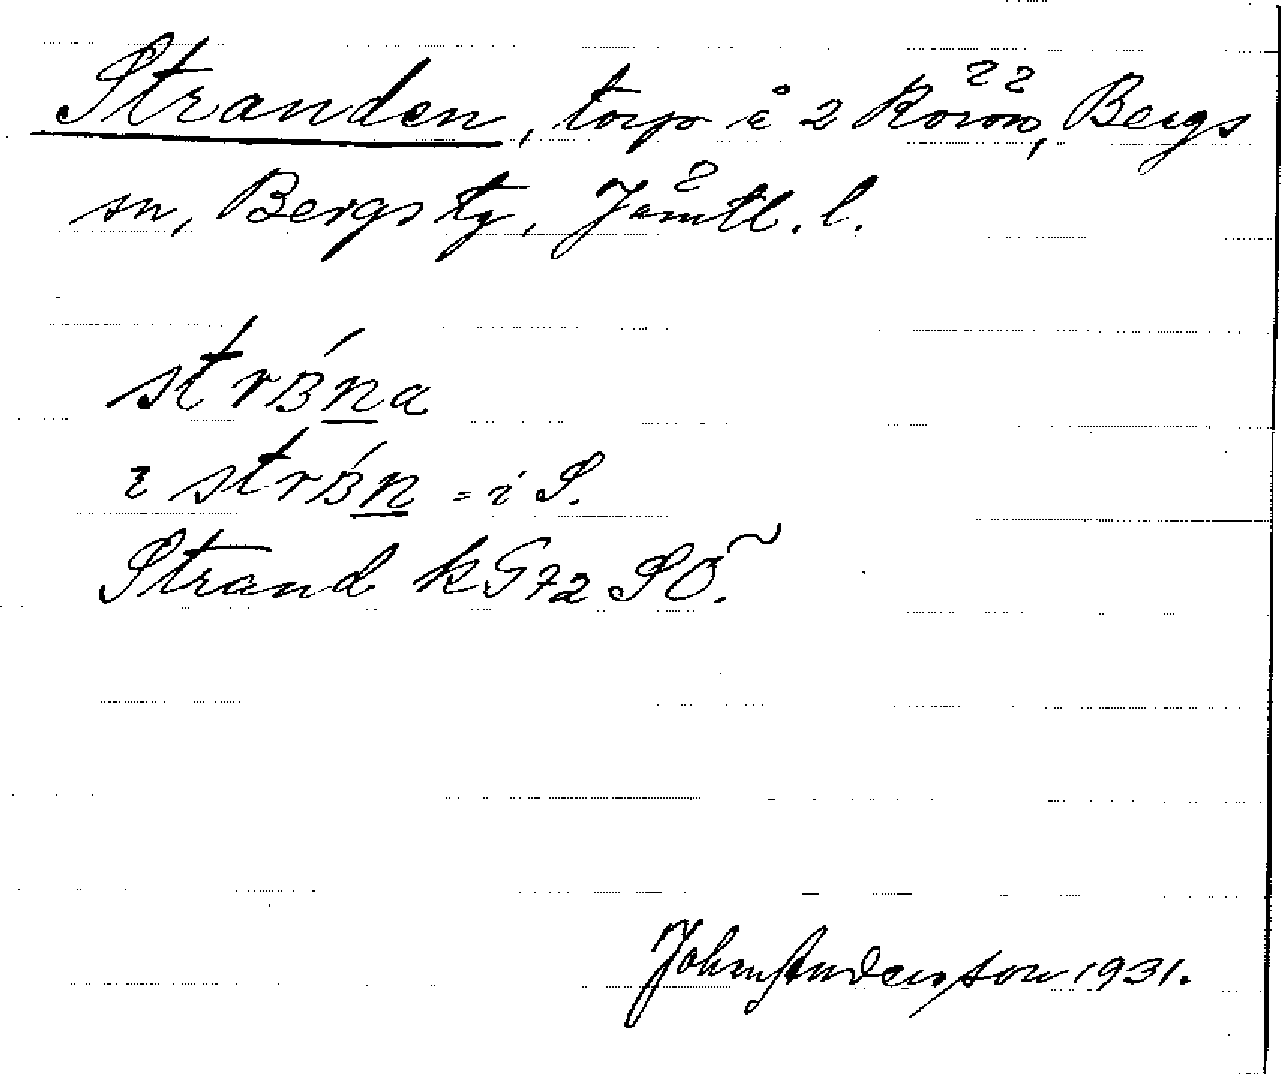 Stranden, torp å 2 Rörön, Bergs
sn, Bergs tg, Jämtl. l.
strʙ́na
ɪ strʙ́n = i S.
Strand kG72 SO.
John Andersson 1931.